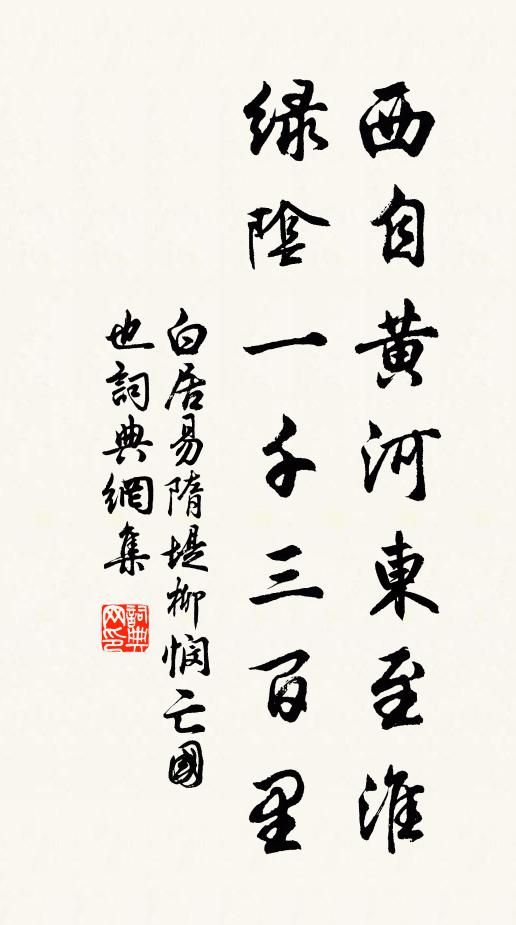 西自黄河東至淮
緑陰一千三百里
白居易隋堤柳憫亡國
也詞典網集
詞典
网印